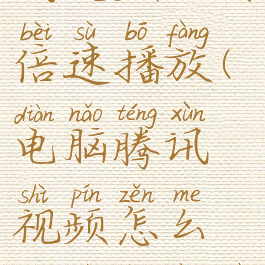 bèi sù bō fàng
倍速播放(
diàn nǎo téng xùn
电脑腾讯
shì pín zěn me
视频怎么